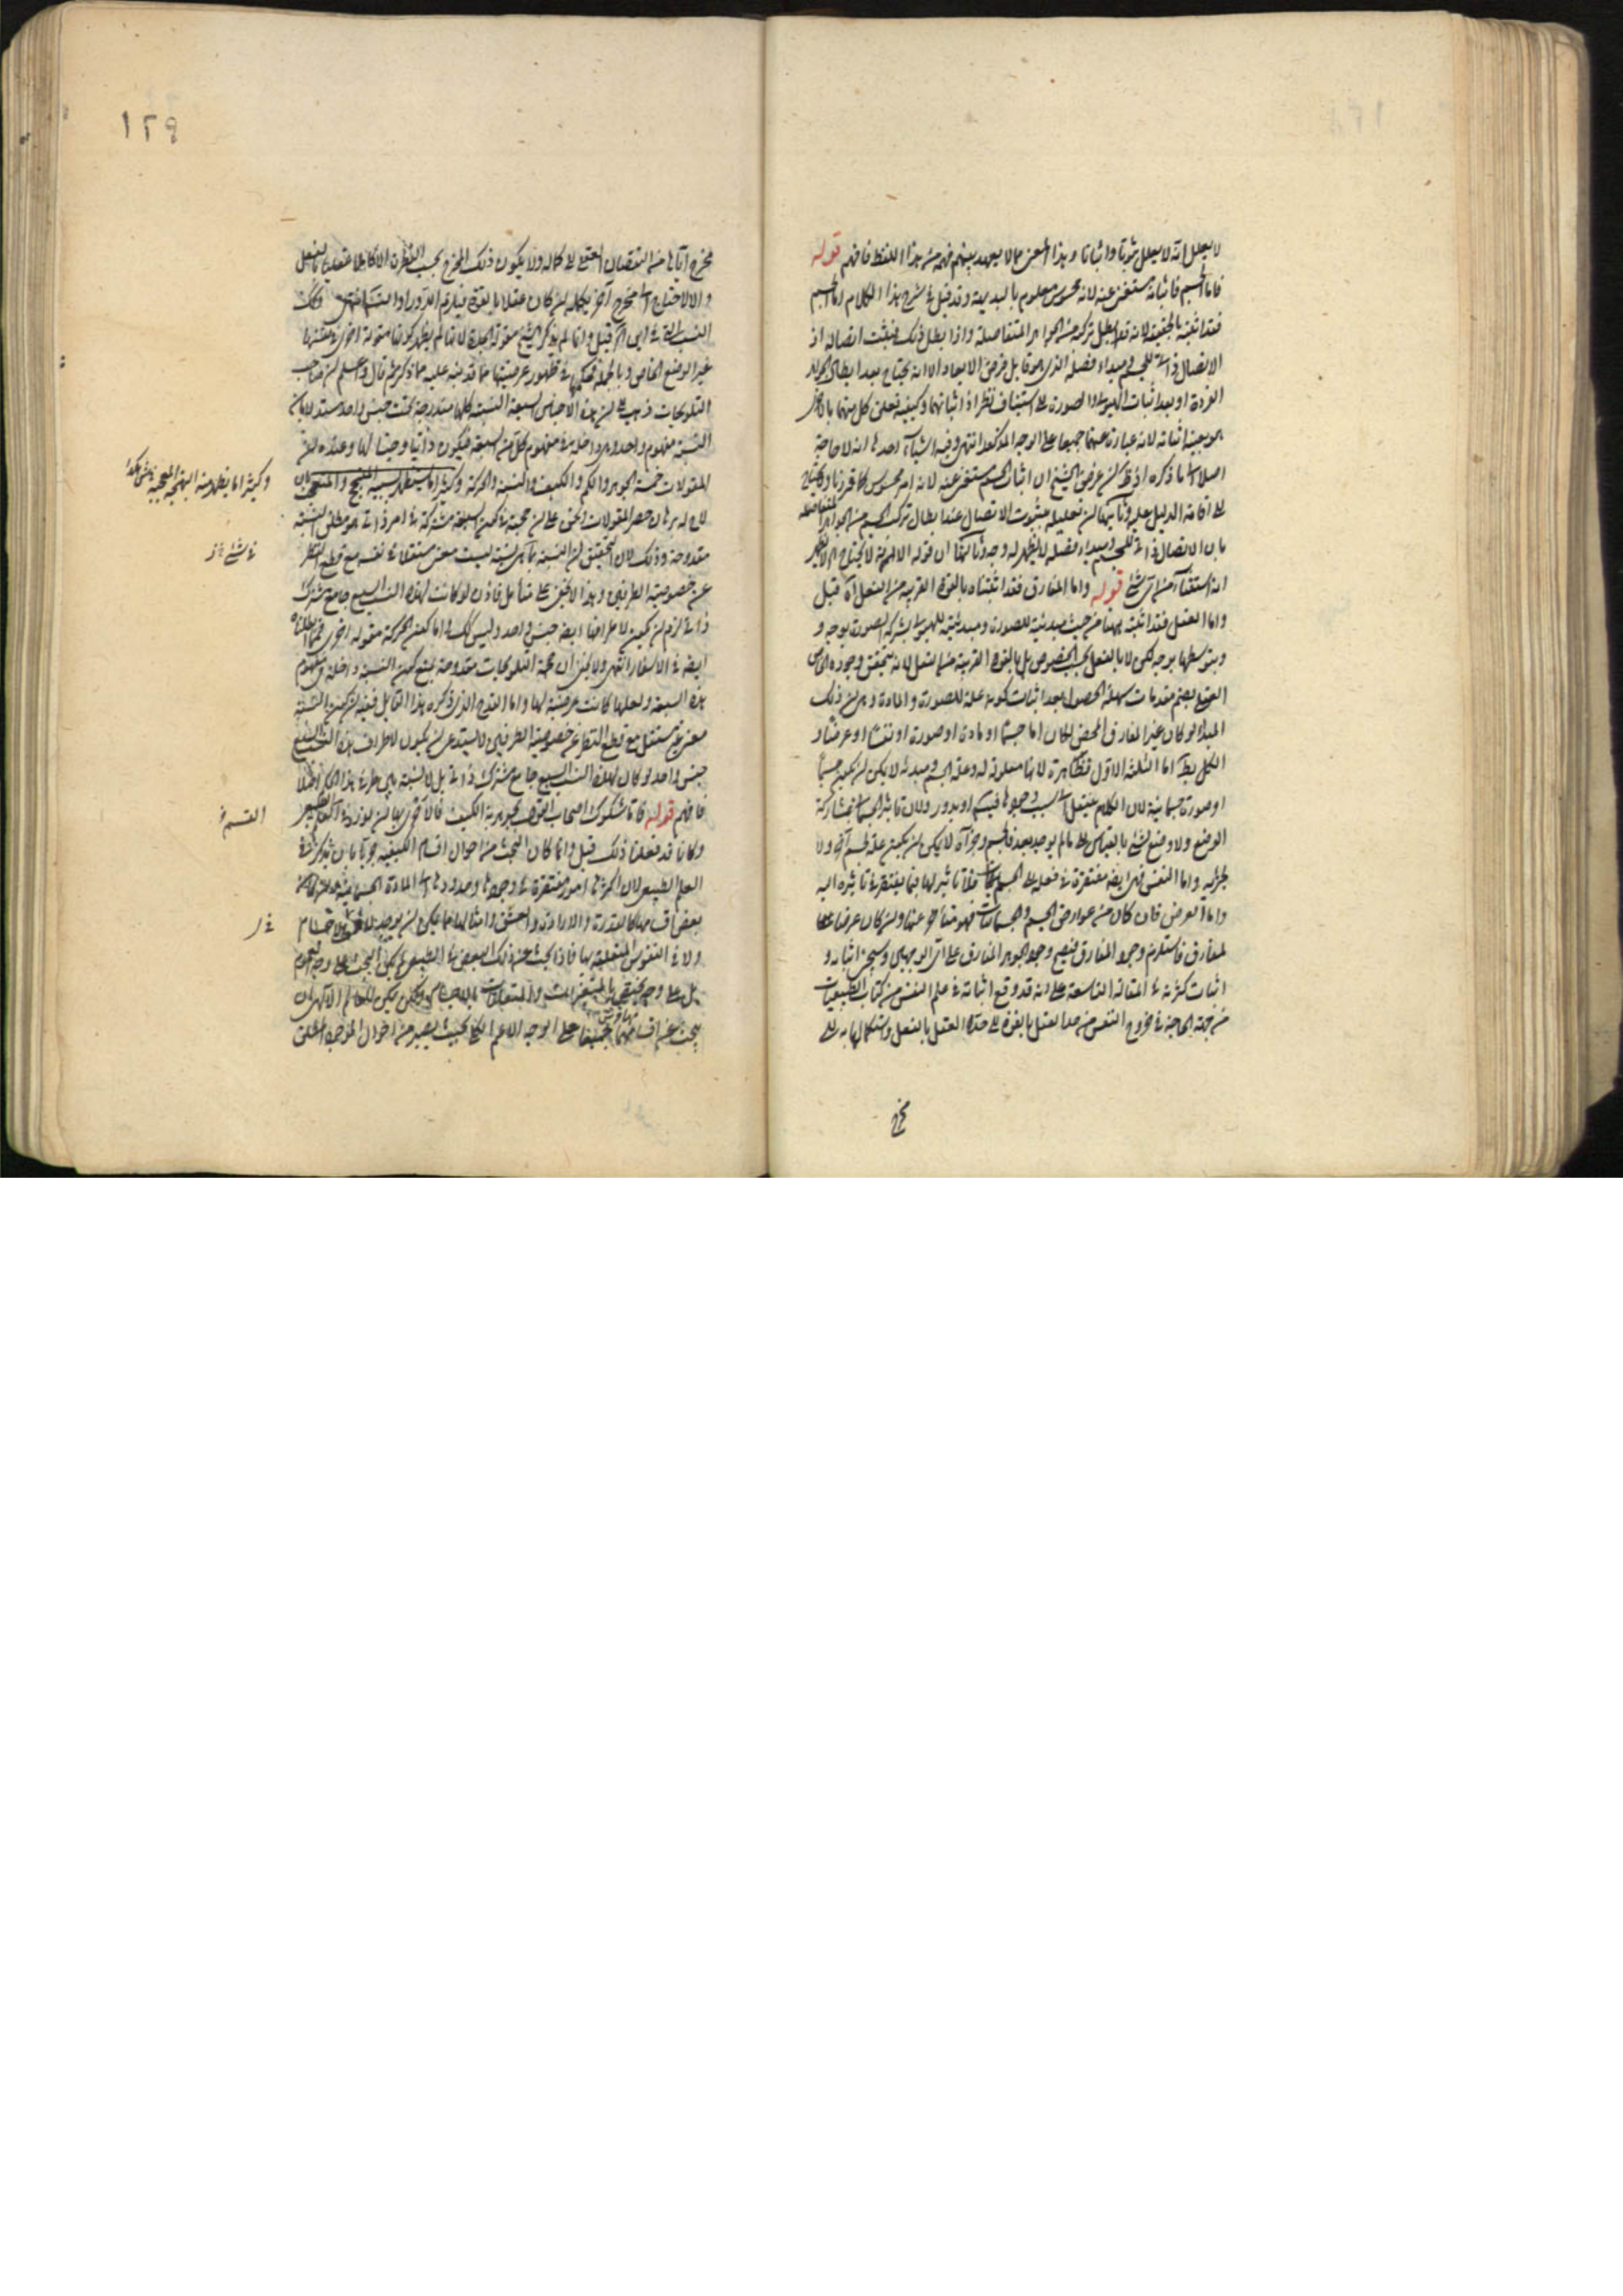 لا يعلل انه لا يعلل ثبوتا واثباتا وهذا المعنى مما لا يعهد بينهم فهمه من هذا اللفظ فافهم قوله
فاما الجسم فاثباته مستغنى عنه لانه محسوس معلوم بالبديهة وقد قيل في شرح هذا الكلام اما الجسم
فقد اثبته بالحقيقة لانه قد ابطل تركبه من الجواهر المتفاصلة واذا بطل ذلك فيثبت اتصاله اذ
الاتصال ذاتى للجسم ومبداء فصله الذى هو قابل فرض الابعاد الا انه يحتاج بعد ابطال الجواهر
الفردة او بعد اثبات الهيولى والصورة الى استيناف نظر اذ اثباتهما وكيفية تعلق كل منهما بالاخر
هو بعينه اثباته لانه عبارة عنهما جميعا على الوجه المذكور انتهى وفيه اشياء احدها انه لا حاجة
اصلا الى ما ذكره اذ غرض الشيخ ان اثبات الجسم مستغنى عنه لانه امر محسوس كما قررنا
الى اقامة الدليل عليه وثانيهما ان تعليله بثبوت الاتصال عند ابطال تركب الجسم من الجواهر المتفاصلة
بان الاتصال ذاتى للجسم ومبداء فصله لا يظهر له وجه وثالثها ان قوله الا انه
انه استثناء من اى شئ قوله واما المفارق فقد اثبتناه بالقوة القريبة من الفعل اه قيل
واما العقل فقد اثبته ههنا من حيث مبدئية للصورة ومبدئيته للهيولى بشركة الصورة بوجه و
وبتوسطها بوجه لكن لا بالفعل بحسب الخصوص بل بالقوة القريبة من الفعل لانه يتحقق وجوده الخاص
العقلى بضم مقدمات سهلة الحصول بعد اثبات كونه علة للصورة والمادة وهى ان ذلك
المبدأ لو كان غير المفارق المحض لكان اما جسما او مادة او صورة او نفسا او عرضا و
الكل بط اما الثلثة الاول فظاهرة لانها معلولة له وعلة الجسم ومبدئه لا يمكن ان يكون جسما
او صورة جسمانية لان الكلام ينتقل الى سبب وجودها فيتسلسل او يدور ولان تاثير الجسمانى بمشاركة
الوضع ولا وضع لشئ بالقياس الى ما لم يوجد بعد فالجسم وجزآه لا يمكن ان يكون علة لجسم آخر ولا
لجزئيه واما النفس فهى ايضا مفتقرة في فعله الى الجسم فلا تاثير لها فيما يفتقر في تاثيره اليه
واما العرض فان كان من عوارض الجسم والجسمانيات فهو متأخر عنها وان كان عرضا
لمفارق فاستلزم وجود المفارق فيصح وجود الجوهر المفارق على اى الوجهين وسيجئ اثباته و
اثبات كثرته في المقالة التاسعة على انه قد وقع اثباته في علم النفس من كتاب الطبيعيات
من جهة الحاجة في خروج النفس من حد العقل بالقوة الى حد العقل بالفعل واستكمالها به الى
مخرج
١٢٩
مخرج اياها من النقصان العقلى الى كماله ولا يكون ذلك المخرج بحسب الفطرة الا كاملا عقليا بالفعل
والا لاحتاج الى مخرج آخر يكمله ان كان عقلا بالقوة فيلزم الدور او التسلسل انتهى
النسب القى في اى الا قيل وانما لم يذكر الشيخ مقولة الجدة لانها لم يظهر كونها مقولة اخرى
غير الوضع الخاص وبالجملة فحكمها في ظهور عرضيتها مما قد نبه عليه مما ذكر ثم قال واعلم ان صاحب
التلويحات ذهب الى ان هذه الاجناس السبعة النسبية كلها مندرجة تحت جنس واحد مستدلا بان
النسبة مفهوم واحد وهو داخل في مفهوم كل من السبعة فيكون ذاتيا وجنسا لها وعنده ان
المقولات خمسة الجوهر والكم والكيف والنسبة والحركة وكثيرا ما يستظهر
لاح له برهان حصر المقولات والحق على ان حجيته في كون السبعة مشتركة في امر ذاتى هو مطلق النسبة
مقدوحة وذلك لان التحقيق ان النسبة بما هى نسبة ليست معنى مستقلا في نفسه مع قطع النظر
عن خصوصية الطرفين وهذا لا يخفى على متأمل فاذن لو كانت لهذه النسب السبع جامع مشترك
ذاتى لزم ان يكون لاطرافها ايضا جنس واحد وليس كذلك واما كون الحركة مقولة اخرى فمما ابطلناه
ايضا في الاسفار انتهى ولا يخفى ان حجة التلويحات مقدوحة بمنع كون النسبة داخلة في مفهوم
هذه السبعة ولعلها كانت عرضية لها واما القدح الذى ذكره هذا القائل ففيه ان كون النسبة
معنى غير مستقل مع قطع النظر عن خصوصية الطرفين لا يستدعى ان يكون لاطراف هذه النسب السبع
جنس واحد لو كان لهذه النسب السبع جامع مشترك ذاتى بل لا نسبة بين هذا
فافهم قوله فاما شكوك اصحاب القول بجوهرية الكيف فالاحرى بها ان يورد في العلم الطبيعى
وكانا قد فعلنا ذلك قيل وانما كان البحث من احوال اقسام الكيفية حريا بان يذكر في
العلم الطبيعى لان اكثرها امور مفتقرة في وجودها وحدودها الى المادة الجسمانية
بعض اقسامها كالقدرة والارادة والعشق وامثالها مما يمكن ان يوجد لا في الاجسام
ولا في النفوس المتعلقة بها فاذا بحث عن ذلك البعض في الطبيعى لم يكن البحث على وجه العموم
بل على وجه يختص بالمتغيرات والمتعلقات بالاجسام ولكن يمكن للعالم الالهى ان
يبحث عن اقسامها جميعا على الوجه الاعم الكلى بحيث يصير من احوال الموجود المطلق
وكثيرا ما يظهر منه
في شئ
القسم